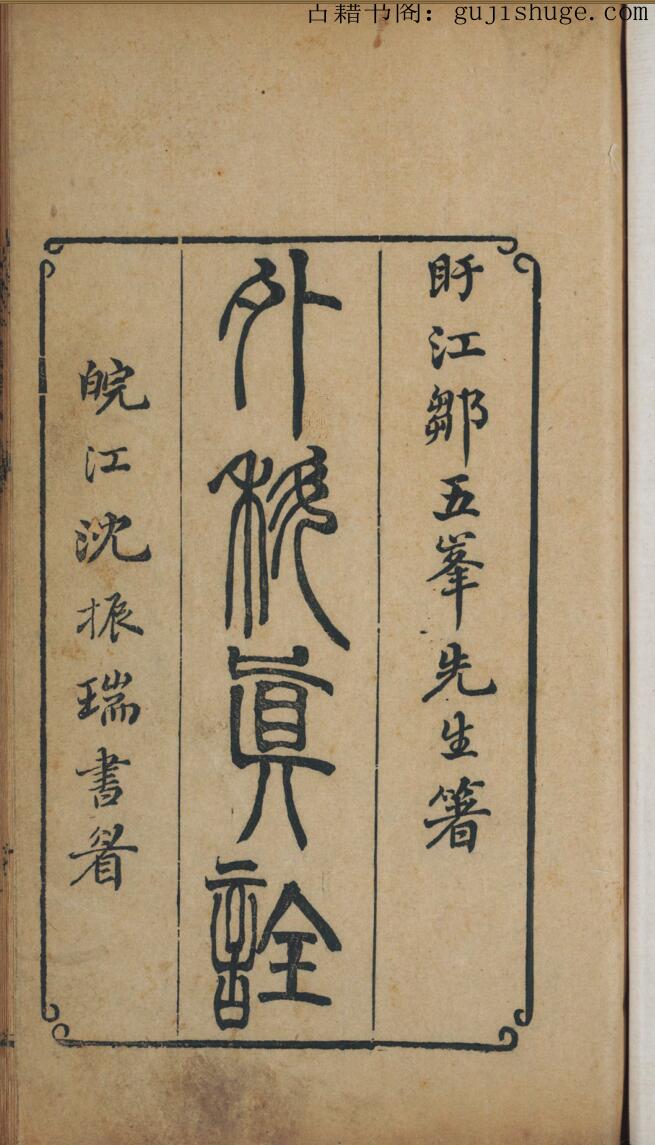 古籍书阁：gujishuge.com
盱江鄒五峯先生箸
外科眞詮
皖江沈振瑞書耑